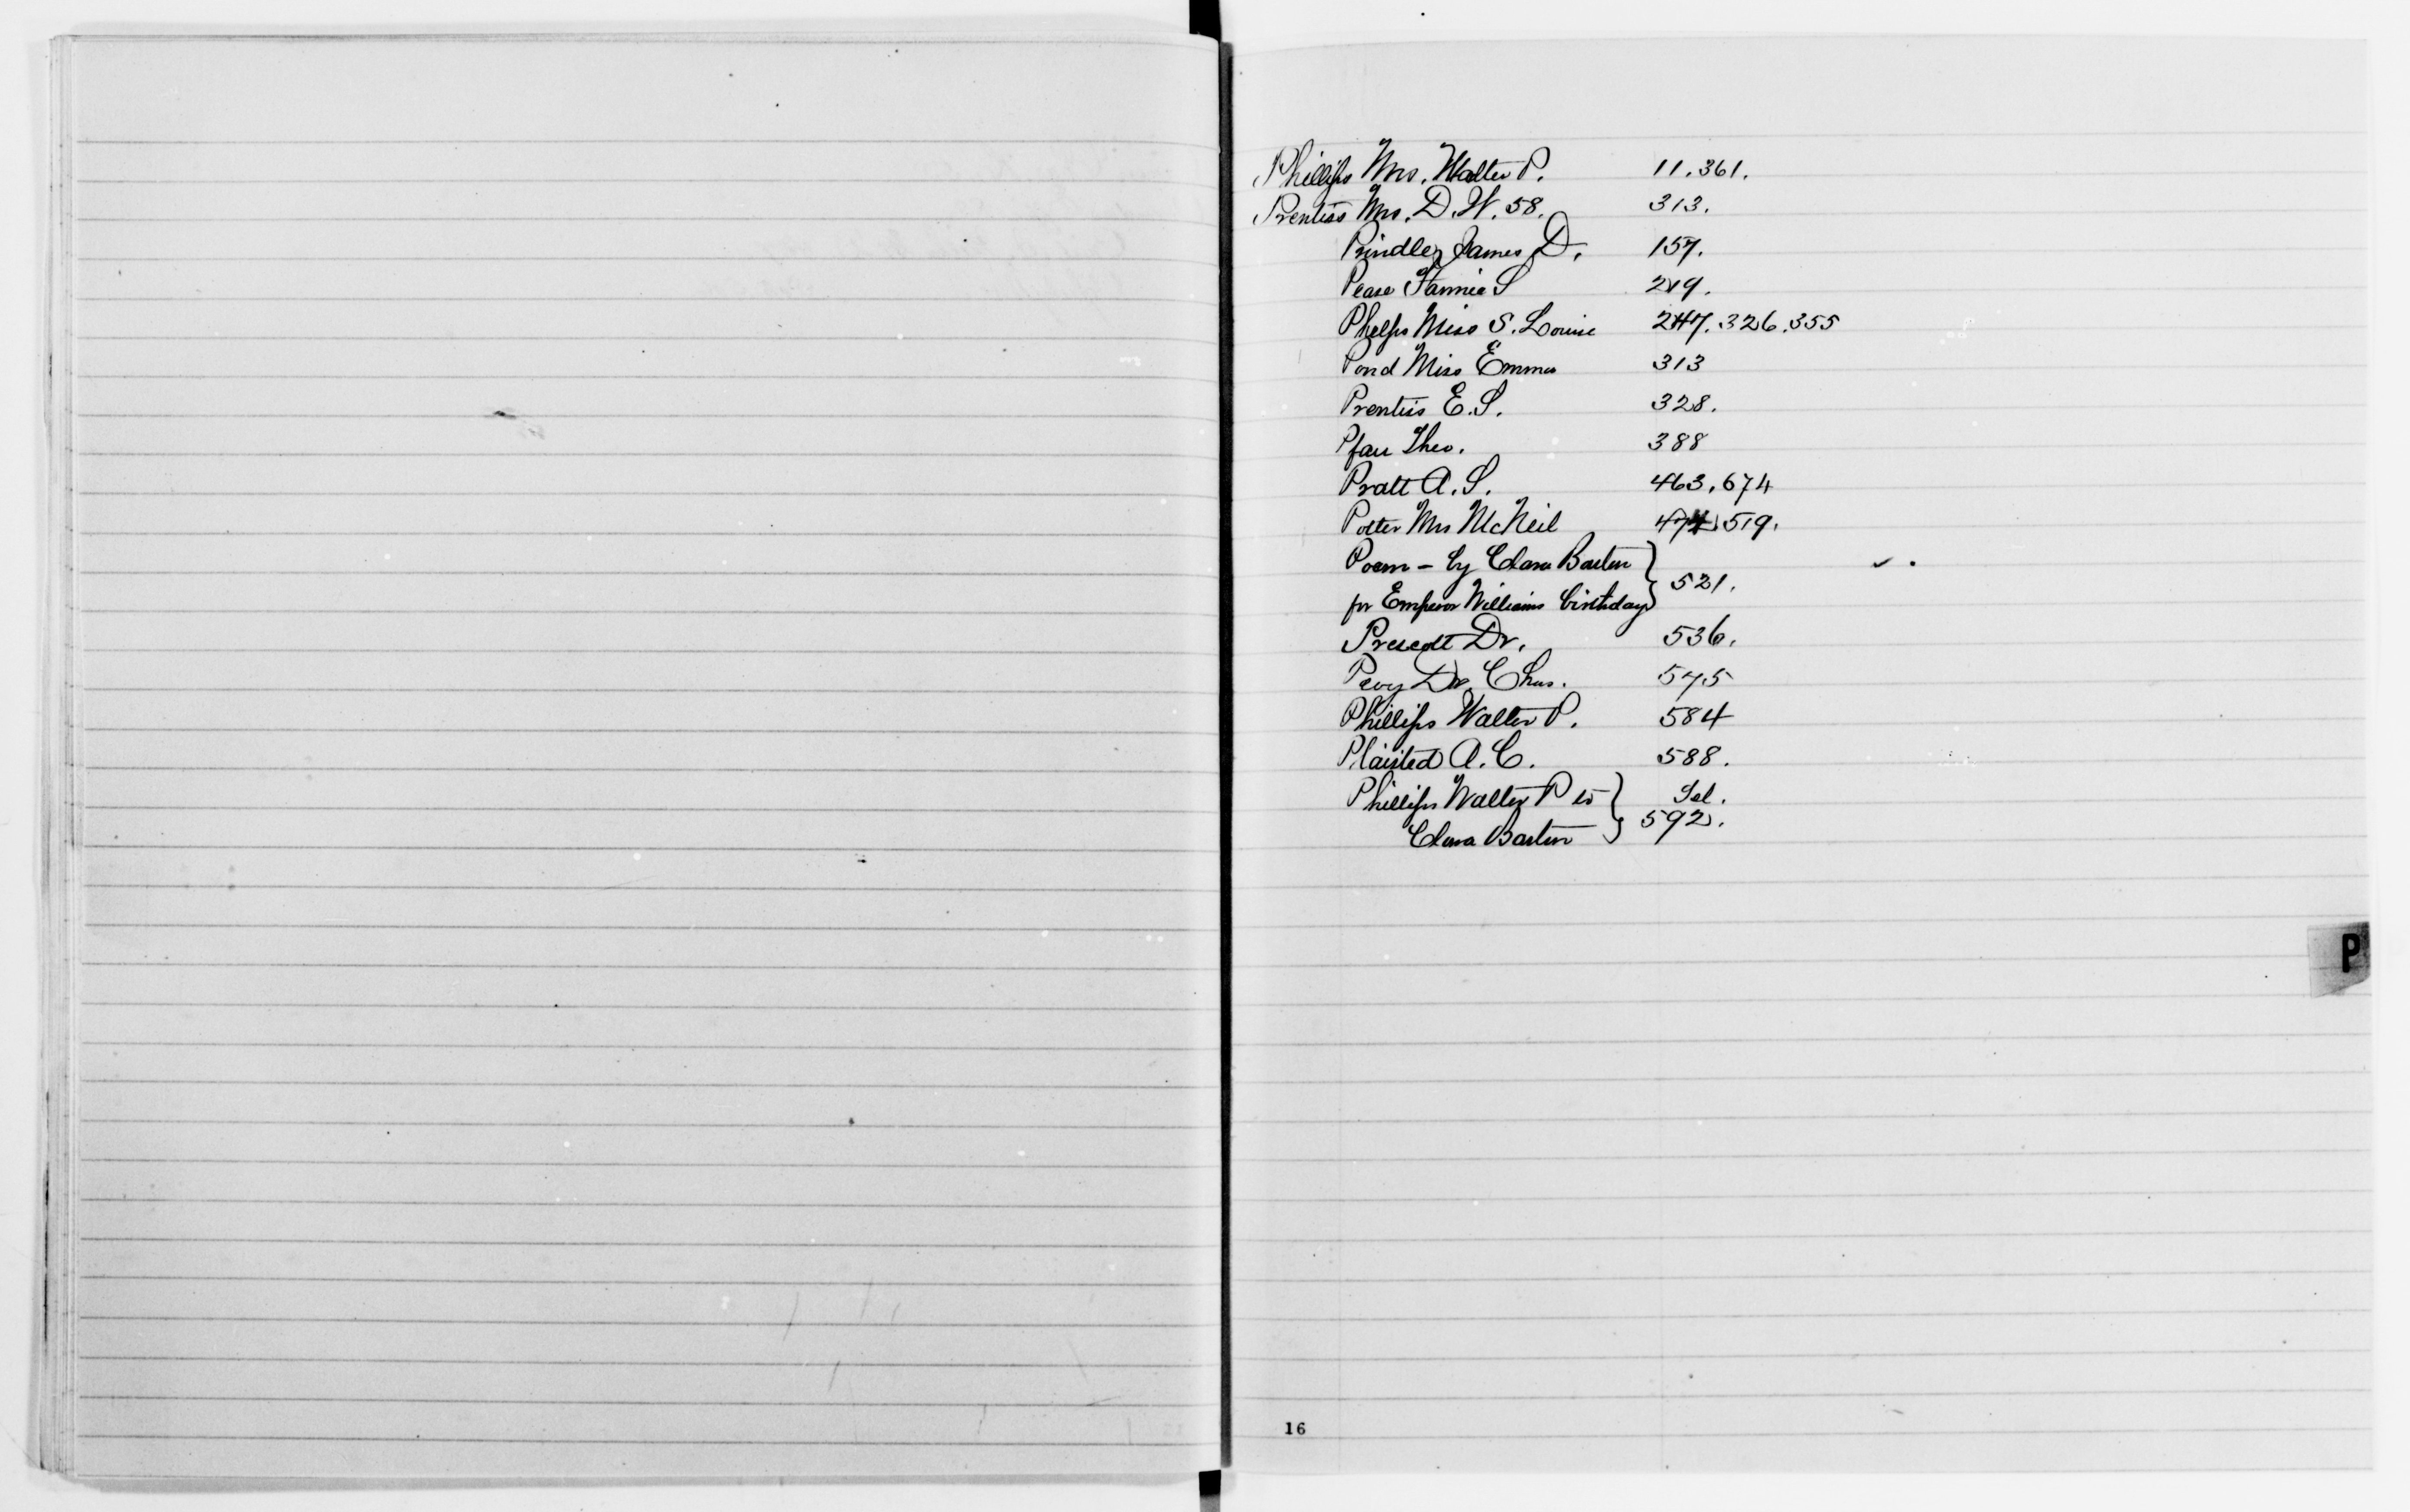 Phillips Mrs. Walter P. 11.361.
Prentiss Mrs. D. W. 58. 313.
Prindley James D. 157.
Pease Fannie S 219.
Phelps Miss S. Louise 247. 326. 355
Pond Miss Emma 313
Prentiss E. S. 328.
Pfau Theo. 388
Pratt A. S. 463, 674
Potter Mrs McNeil 474 519.
Poem - by Clara Barton
for Emperor Williams birthday 521.
Prescott Dr. 536.
Dr. Chas. 575
Phillips Walter P. 584
Plaisted A. C. 588.
Phillips Walter P to Tel.
Clara Barton 592.
P
16